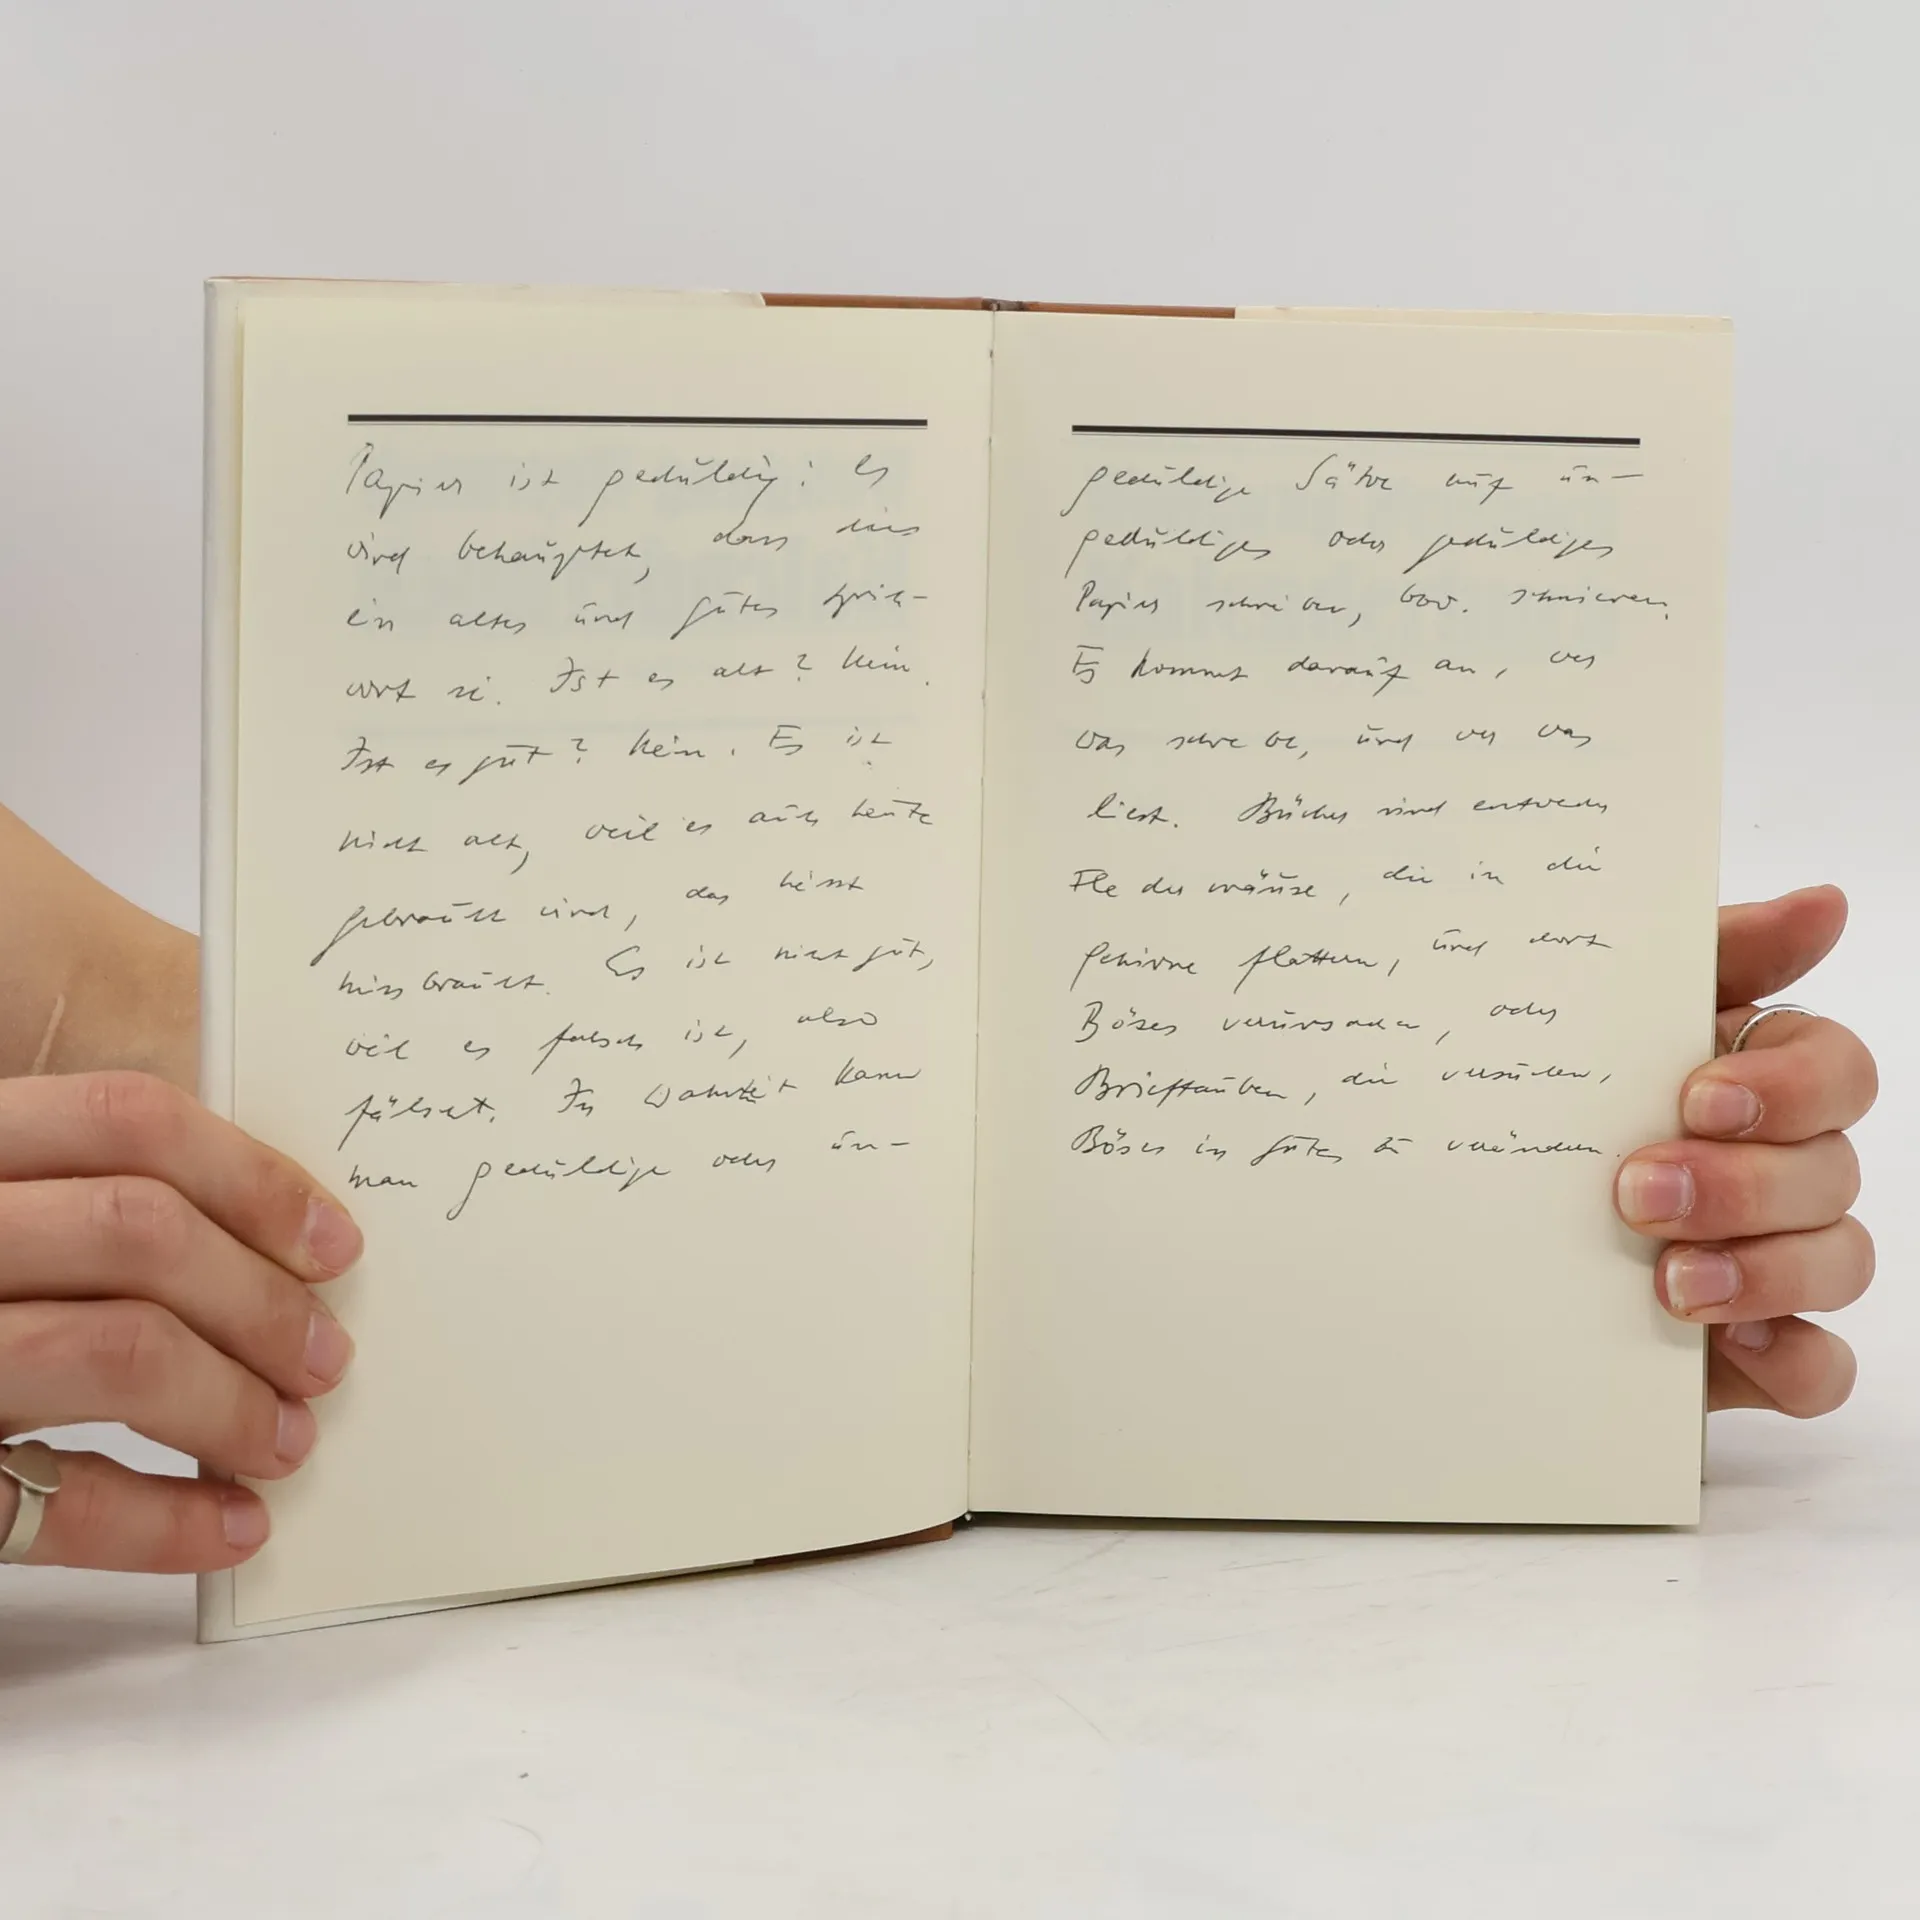 Papier ist geduldig: Es
wird behauptet, dass dies
ein altes und gutes Sprich-
wort sei. Ist es alt? Nein.
Ist es gut? Nein. Es ist
nicht alt, weil es auch heute
gebraucht wird, das heisst
missbraucht. Es ist nicht gut,
weil es falsch ist, also
fälscht. In Wahrheit kann
man geduldige oder un-
geduldige Sätze auf un-
geduldiges oder geduldiges
Papier schreiben, bzw. schmieren.
Es kommt darauf an, wer
was schreibe, und wer was
liest. Bücher sind entweder
Fledermäuse, die in die
Gehirne flattern, und dort
Böses verursachen, oder
Brieftauben, die versuchen,
Böses in Gutes zu verändern.